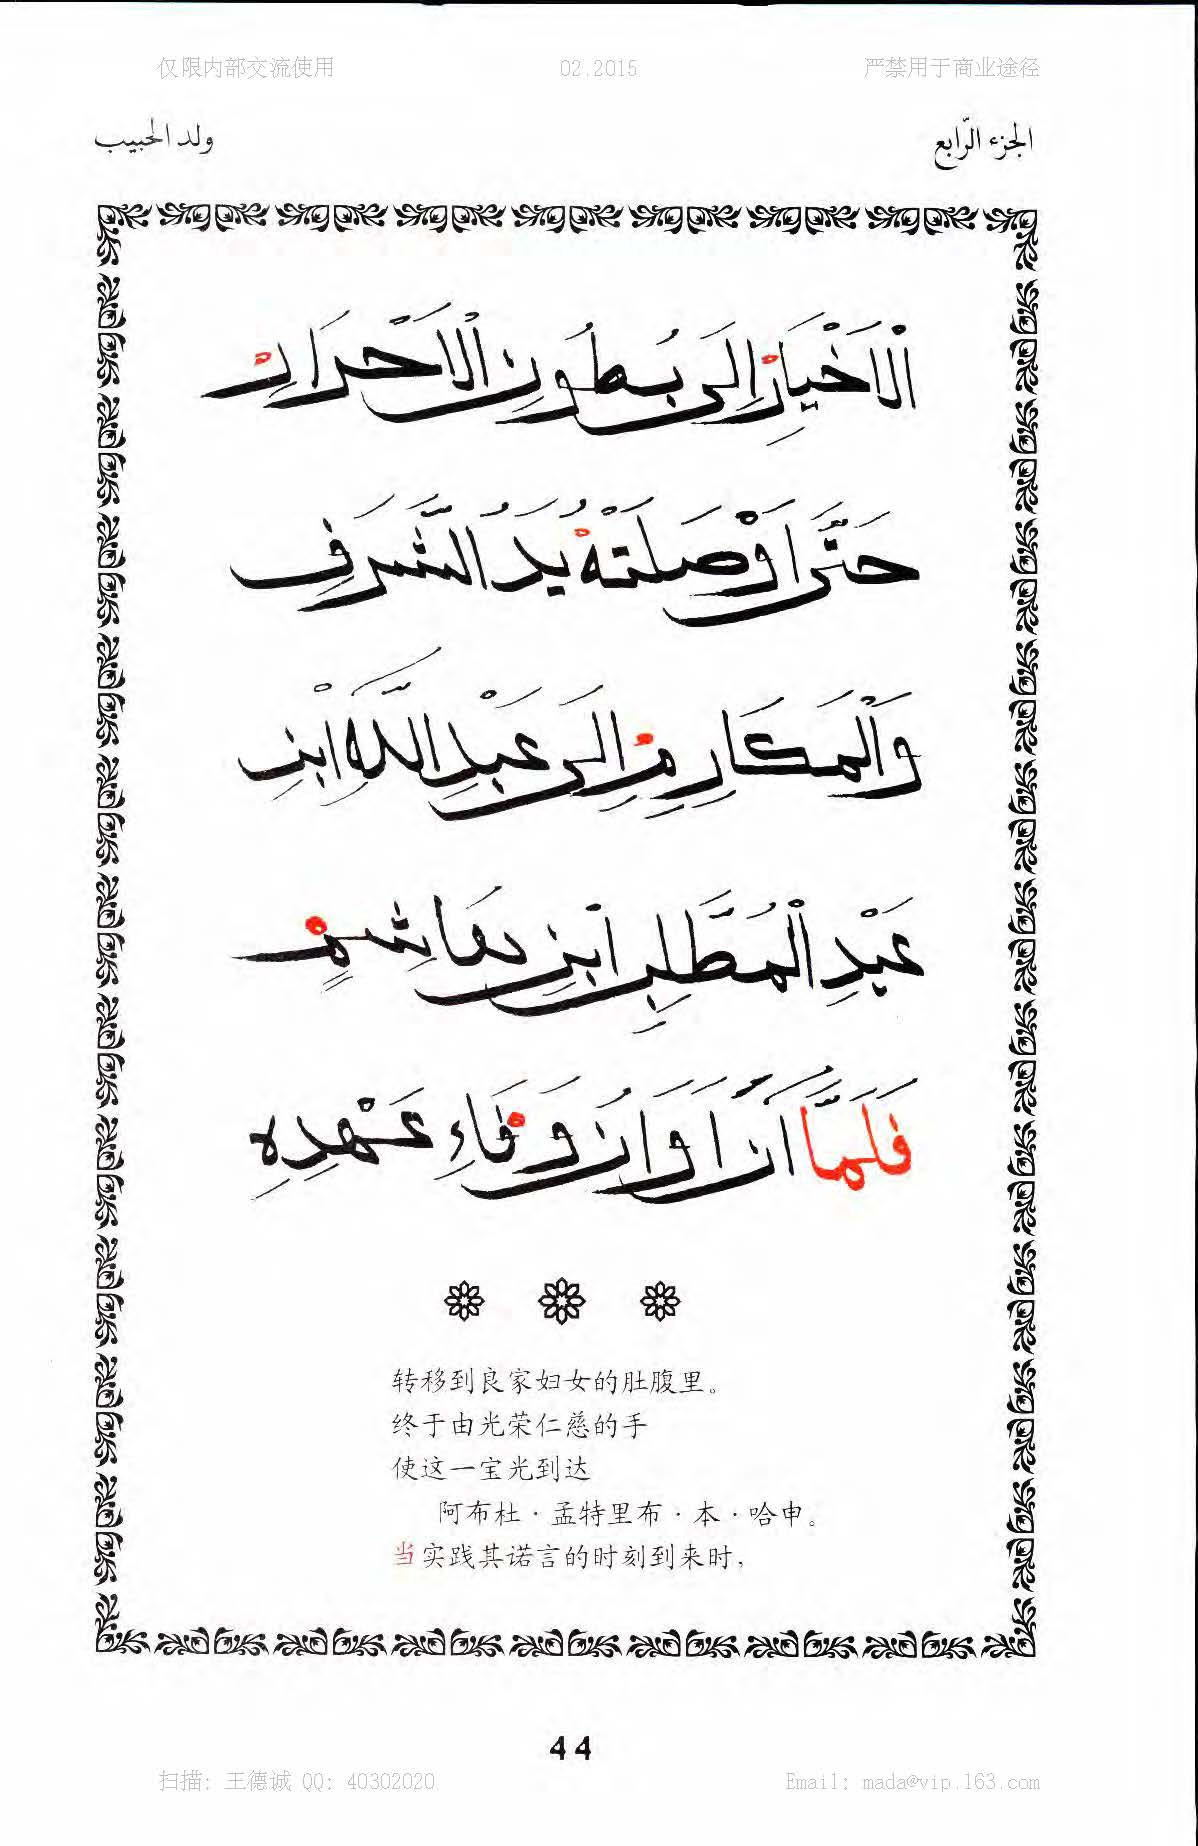 仅限内部交流使用 02.2015 严禁用于商业途径
الجزء الرّابع ولد الحبيب
الْاَخْيَارِ اِلَى بُطُونِ الْاَحْرَارِ
حَتَّى اَوْصَلَتْهُ يَدُ الشَّرَفِ
وَالْمَكَارِمِ اِلَى عَبْدِ اللَّهِ ابْنِ
عَبْدِ الْمُطَّلِبِ ابْنِ هَاشِمٍ
فَلَمَّا اٰنَ اَوَانُ وَفَاءِ عَهْدِهِ
转移到良家妇女的肚腹里。
终于由光荣仁慈的手
使这一宝光到达
阿布杜·孟特里布·本·哈申。
当实践其诺言的时刻到来时，
44
扫描: 王德诚 QQ: 40302020 Email: mada@vip.163.com